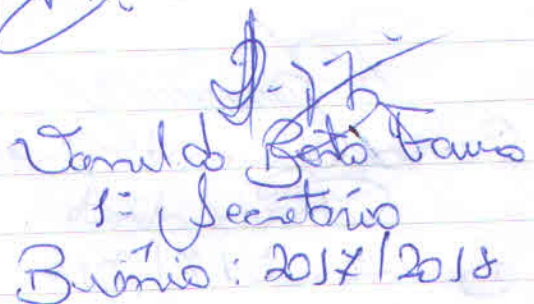 Vanildo Bento Faria
1º Secretário
Biênio: 2017/2018